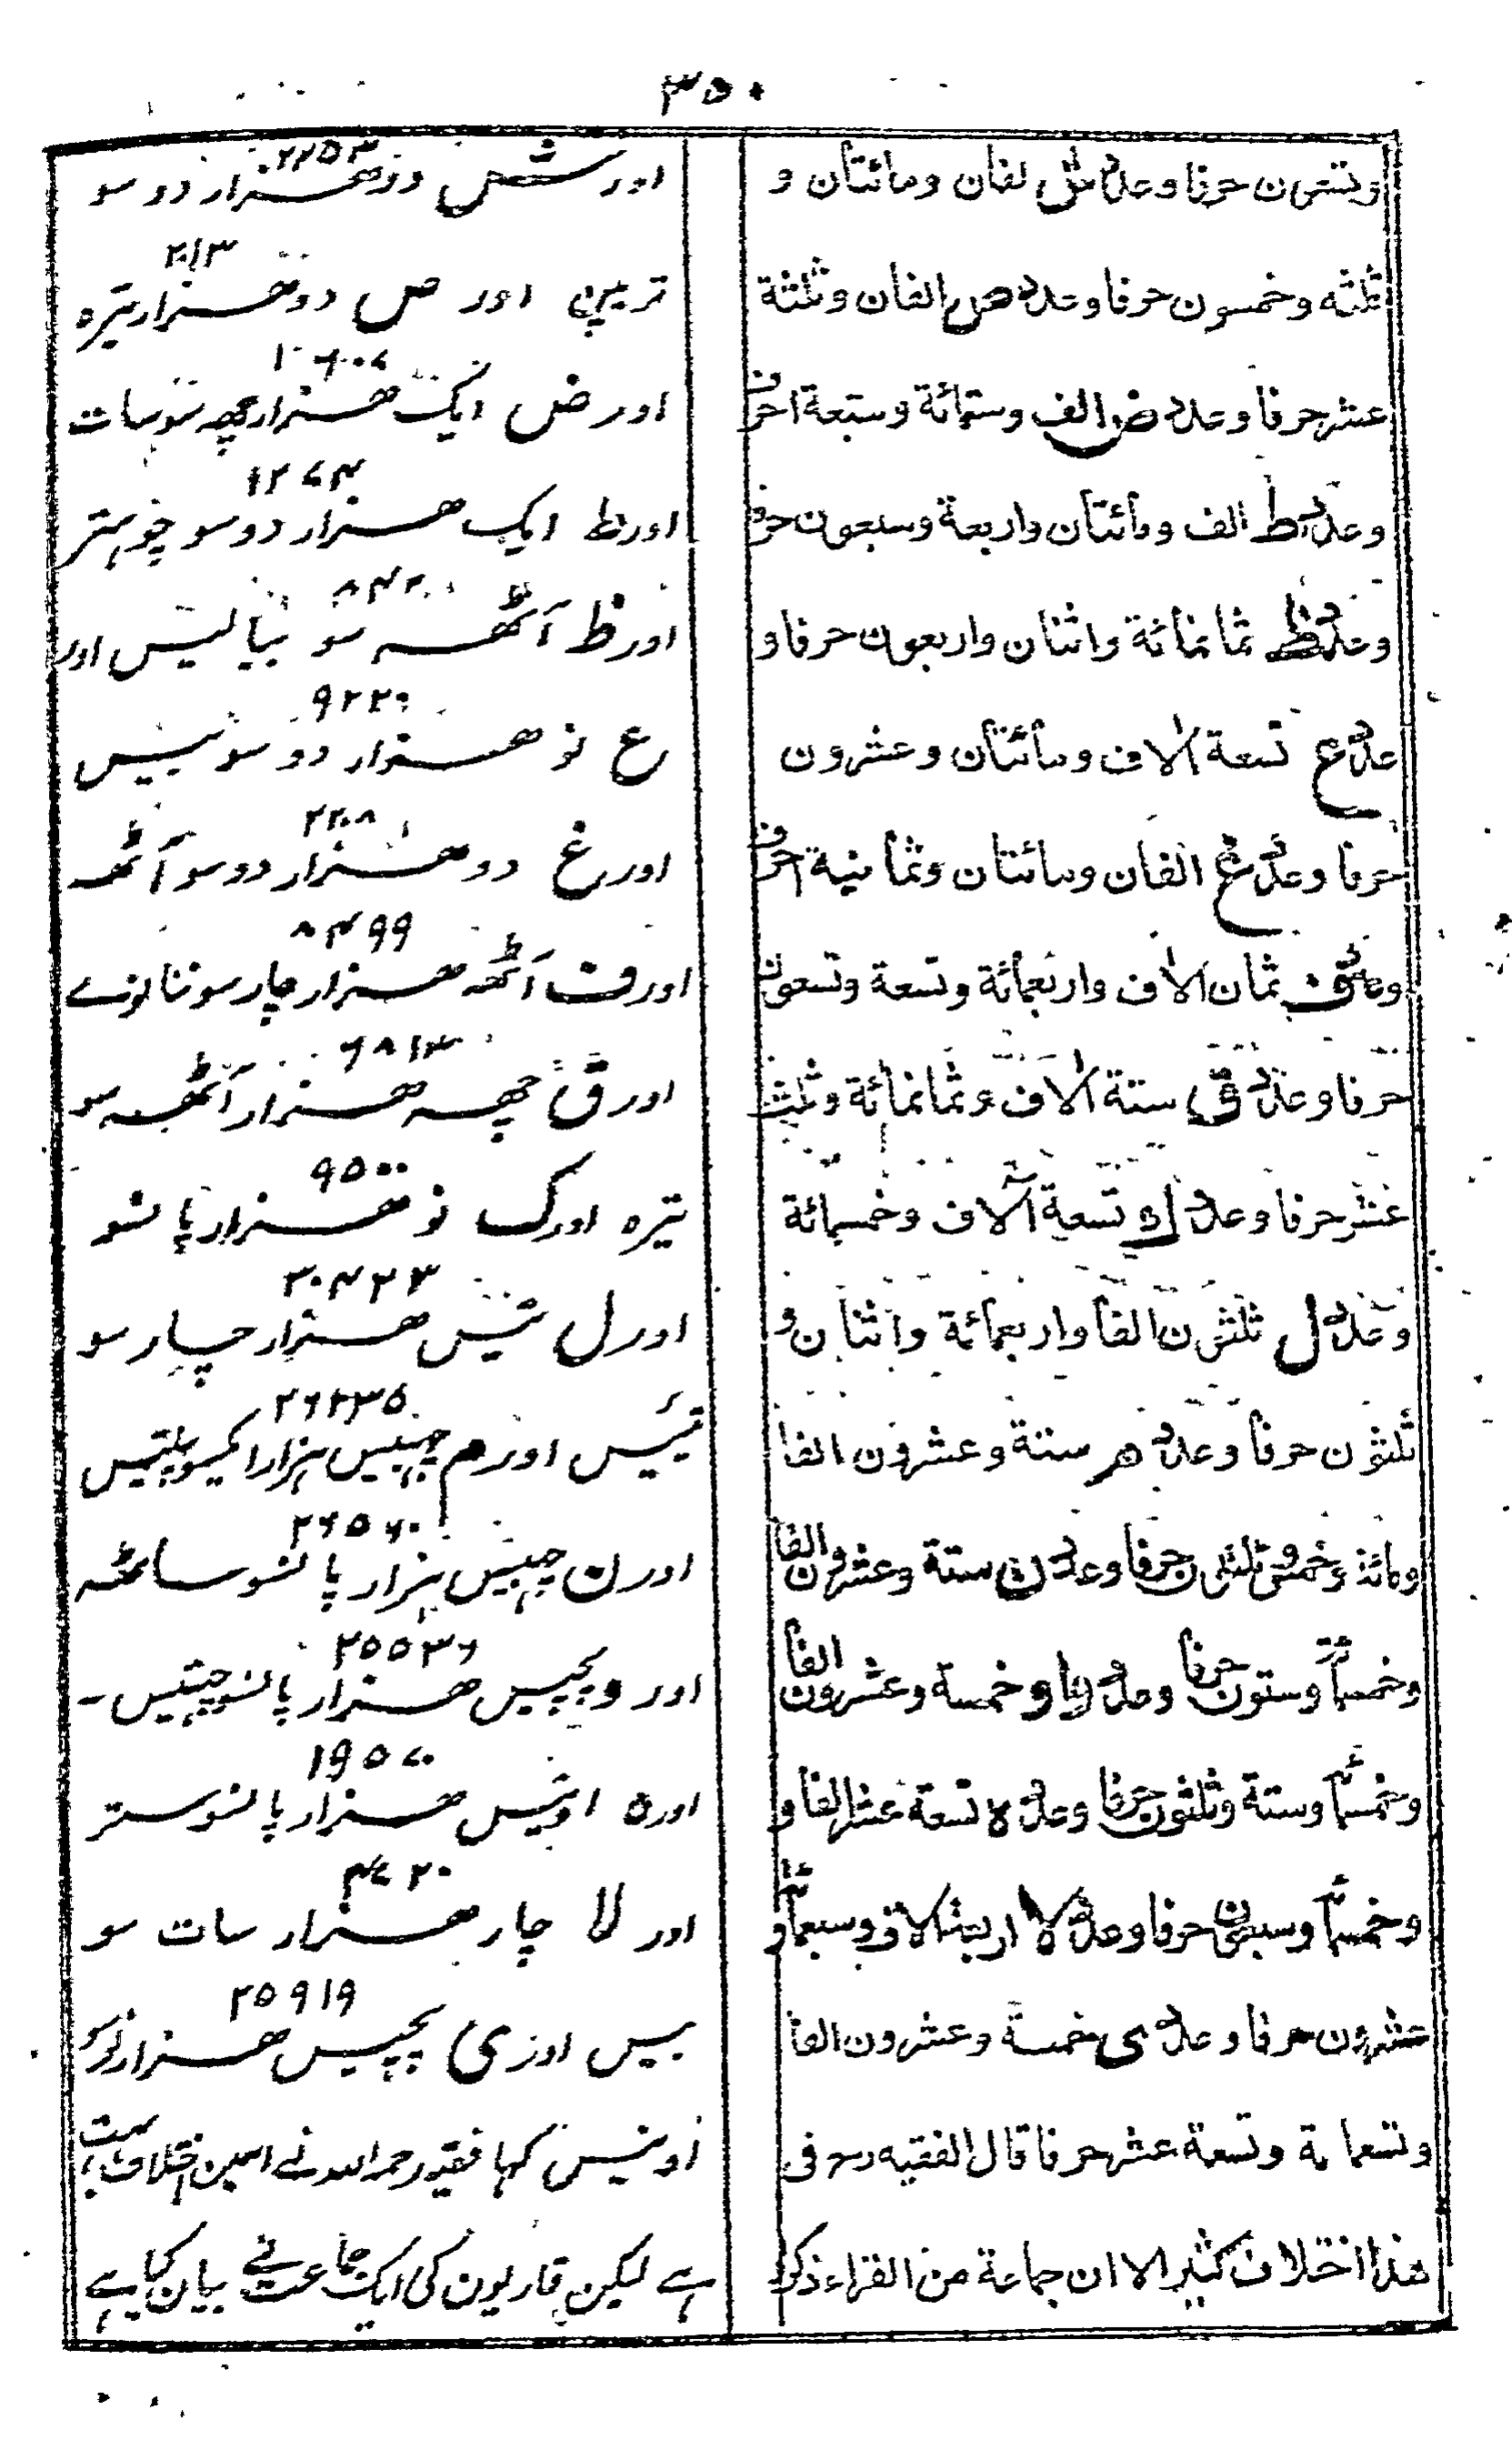 ۳۵۰
وتسعون حرفا وعدد ش الفان ومائتان و
ثلثه وخمسون حرفا وعدد ص الفان وثلثة
عشر حرفا وعدد ض الف وستمائة وسبعة احرف
وعدد ط الف ومائتان واربعة وسبعون حرفا
وعدد ظ ثمانمائة واثنان واربعون حرفا و
عدد ع تسعة الاف ومائتان وعشرون
حرفا وعدد غ الفان ومائتان وثمانية احرف
وعدد ف ثمان الاف واربعمائة وتسعة وتسعون
حرفا وعدد ق ستة الاف وثمانمائة وثلث
عشر حرفا وعدد ك تسعة آلاف وخمسمائة
وعدد ل ثلثون الفا واربعمائة واثنان و
ثلثون حرفا وعدد م ستة وعشرون الفا
ومائة وخمس وثلثون حرفا وعدد ن ستة وعشرون الفا
وخمسمائة وستون حرفا وعدد و خمسة وعشرون الفا
وخمسمائة وستة وثلثون حرفا وعدد ه تسعة عشر الفا و
وخمسمائة وسبعون حرفا وعدد لا اربعة الاف وسبعمائة و
عشرون حرفا وعدد ى خمسة وعشرون الفا
وتسعماىة وتسعة عشر حرفا قال الفقيه رح فى
هذا اختلاف كثير الا ان جماعة من القراء ذكر
۲۲۵۳
اور ش دو هزار دو سو
۲۰۱۳
تریپن اور ص دو هزار تیره
۱۶۰۷
اور ض ایک هزار چھه سو سات
۱۲۷۴
اور ط ایک هزار دو سو چوہتر
۸۴۲
اور ظ آٹھه سو بیالیس اور
۹۲۲۰
ع نو هزار دو سو بیس
۲۲۰۸
اور غ دو هزار دو سو آٹھه
۸۴۹۹
اور ف آٹھه هزار چار سو ننانوے
۶۸۱۳
اور ق چھه هزار آٹھه سو
۹۵۰۰
تیره اور ک نو هزار پانسو
۳۰۴۲۳
اور ل تیس هزار چار سو
۲۶۱۳۵
تیئیس اور م چھبیس ہزار ایکسو پینتیس
۲۶۵۶۰
اور ن چھبیس ہزار پانسو ساٹھه
۲۵۵۳۶
اور و پچیس هزار پانسو چھتیس -
۱۹۵۷۰
اور ه اونیس هزار پانسو ستر
۴۷۲۰
اور لا چار هزار سات سو
۲۵۹۱۹
بیس اور ی پچیس هزار نو سو
اونیس کہا فقیه رحمه الله نے اسمین اختلاف بہت
ہے لیکن قاریون کی ایک جماعت نے بیان کیا ہے